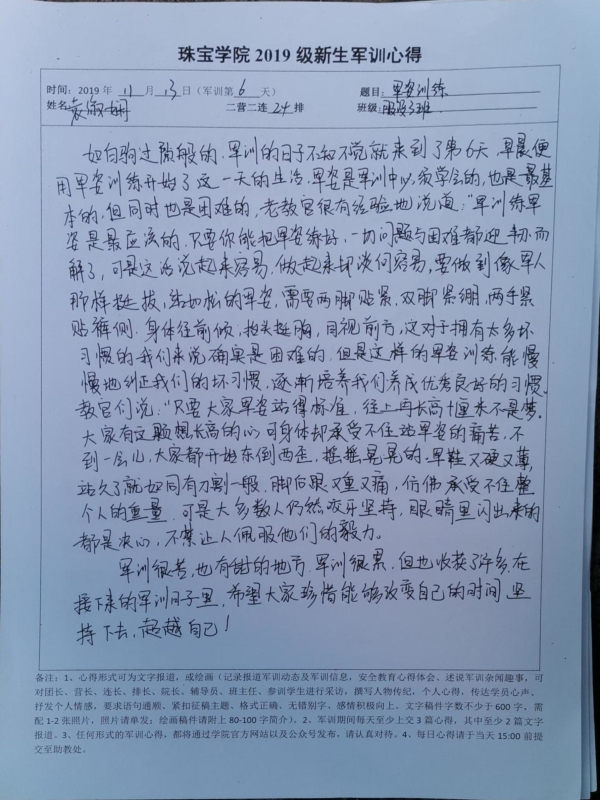 珠宝学院 2019 级新生军训心得
时间：2019 年 11 月 13 日（军训第 6 天） 题目：军姿训练
姓名： 二营二连 24 排 班级：
如白驹过隙般的，军训的日子不知不觉就来到了第6天，早晨便
用军姿训练开始了这一天的生活，军姿是军训中必须学会的，也是最基
本的，但同时也是困难的，老教官很有经验地说道："军训练军
姿是最应该的，只要你能把军姿练好，一切问题与困难都迎韧而
解了，可是这话说起来容易，做起来却谈何容易，要做到像军人
那样挺拔，站如松的军姿，需要两脚贴紧，双脚紧绷，两手紧
贴裤侧，身体往前倾，抬头挺胸，目视前方，这对于拥有太多坏
习惯的我们来说确实是困难的，但是这样的军姿训练，能慢
慢地纠正我们的坏习惯，逐渐培养我们养成优秀良好的习惯。
教官们说："只要大家军姿站得标准，往上再长高十厘米不是梦。
大家有这颗想长高的心可身体却承受不住站军姿的痛苦，不
到一会儿，大家都开始东倒西歪，摇摇晃晃的，军鞋又硬又薄，
站久了就如同有刀割一般，脚后跟又重又痛，仿佛承受不住整
个人的重量，可是大多数人仍然咬牙坚持，眼睛里闪出来的
都是决心，不禁让人佩服他们的毅力。
军训很苦，也有甜的地方，军训很累，但也收获了许多，在
接下来的军训日子里，希望大家珍惜能够改变自己的时间，坚
持下去，超越自己！
备注：1、心得形式可为文字报道，或绘画（记录报道军训动态及军训信息，安全教育心得体会、述说军训杂闻趣事，可
对团长、营长、连长、排长、院长、辅导员、班主任、参训学生进行采访，撰写人物传纪，个人心得，传达学员心声、
抒发个人情感，要求语句通顺、紧扣征稿主题、格式正确、无错别字、感情积极向上。文字稿件字数不少于 600 字，需
配 1-2 张照片，照片请单发；绘画稿件请附上 80-100 字简介）。2、军训期间每天至少上交 3 篇心得，其中至少 2 篇文字
报道。3、任何形式的军训心得，都将通过学院官方网站以及公众号发布，请认真对待。4、每日心得请于当天 15:00 前提
交至助教处。